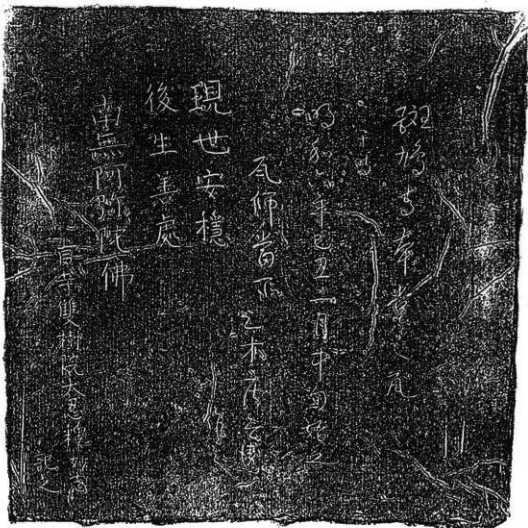 斑鳩寺本堂之瓦
明和六年己丑二月中旬始之
瓦師當所
作
現世安穩
後生善處
南無阿弥陀佛
當寺雙樹院大
記之